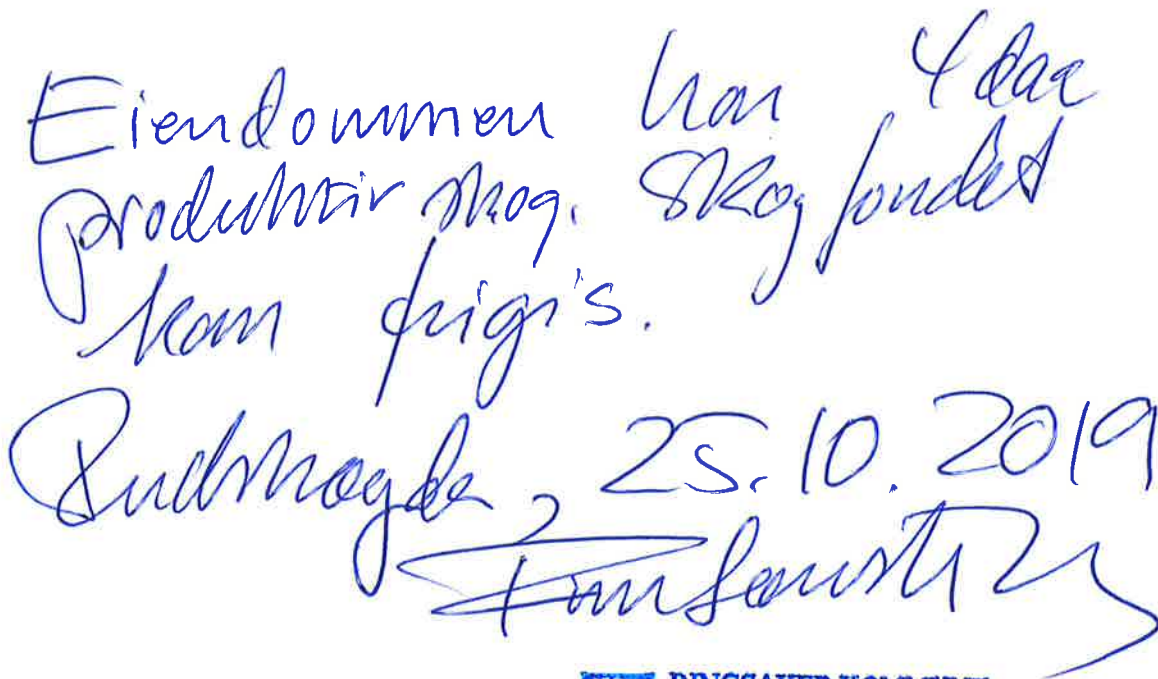 Eiendommen har 4 daa
produktiv skog. Skogfondet
kan frigis.
Rudshøgda, 25.10.2019
RINGSAKER KOMMUNE